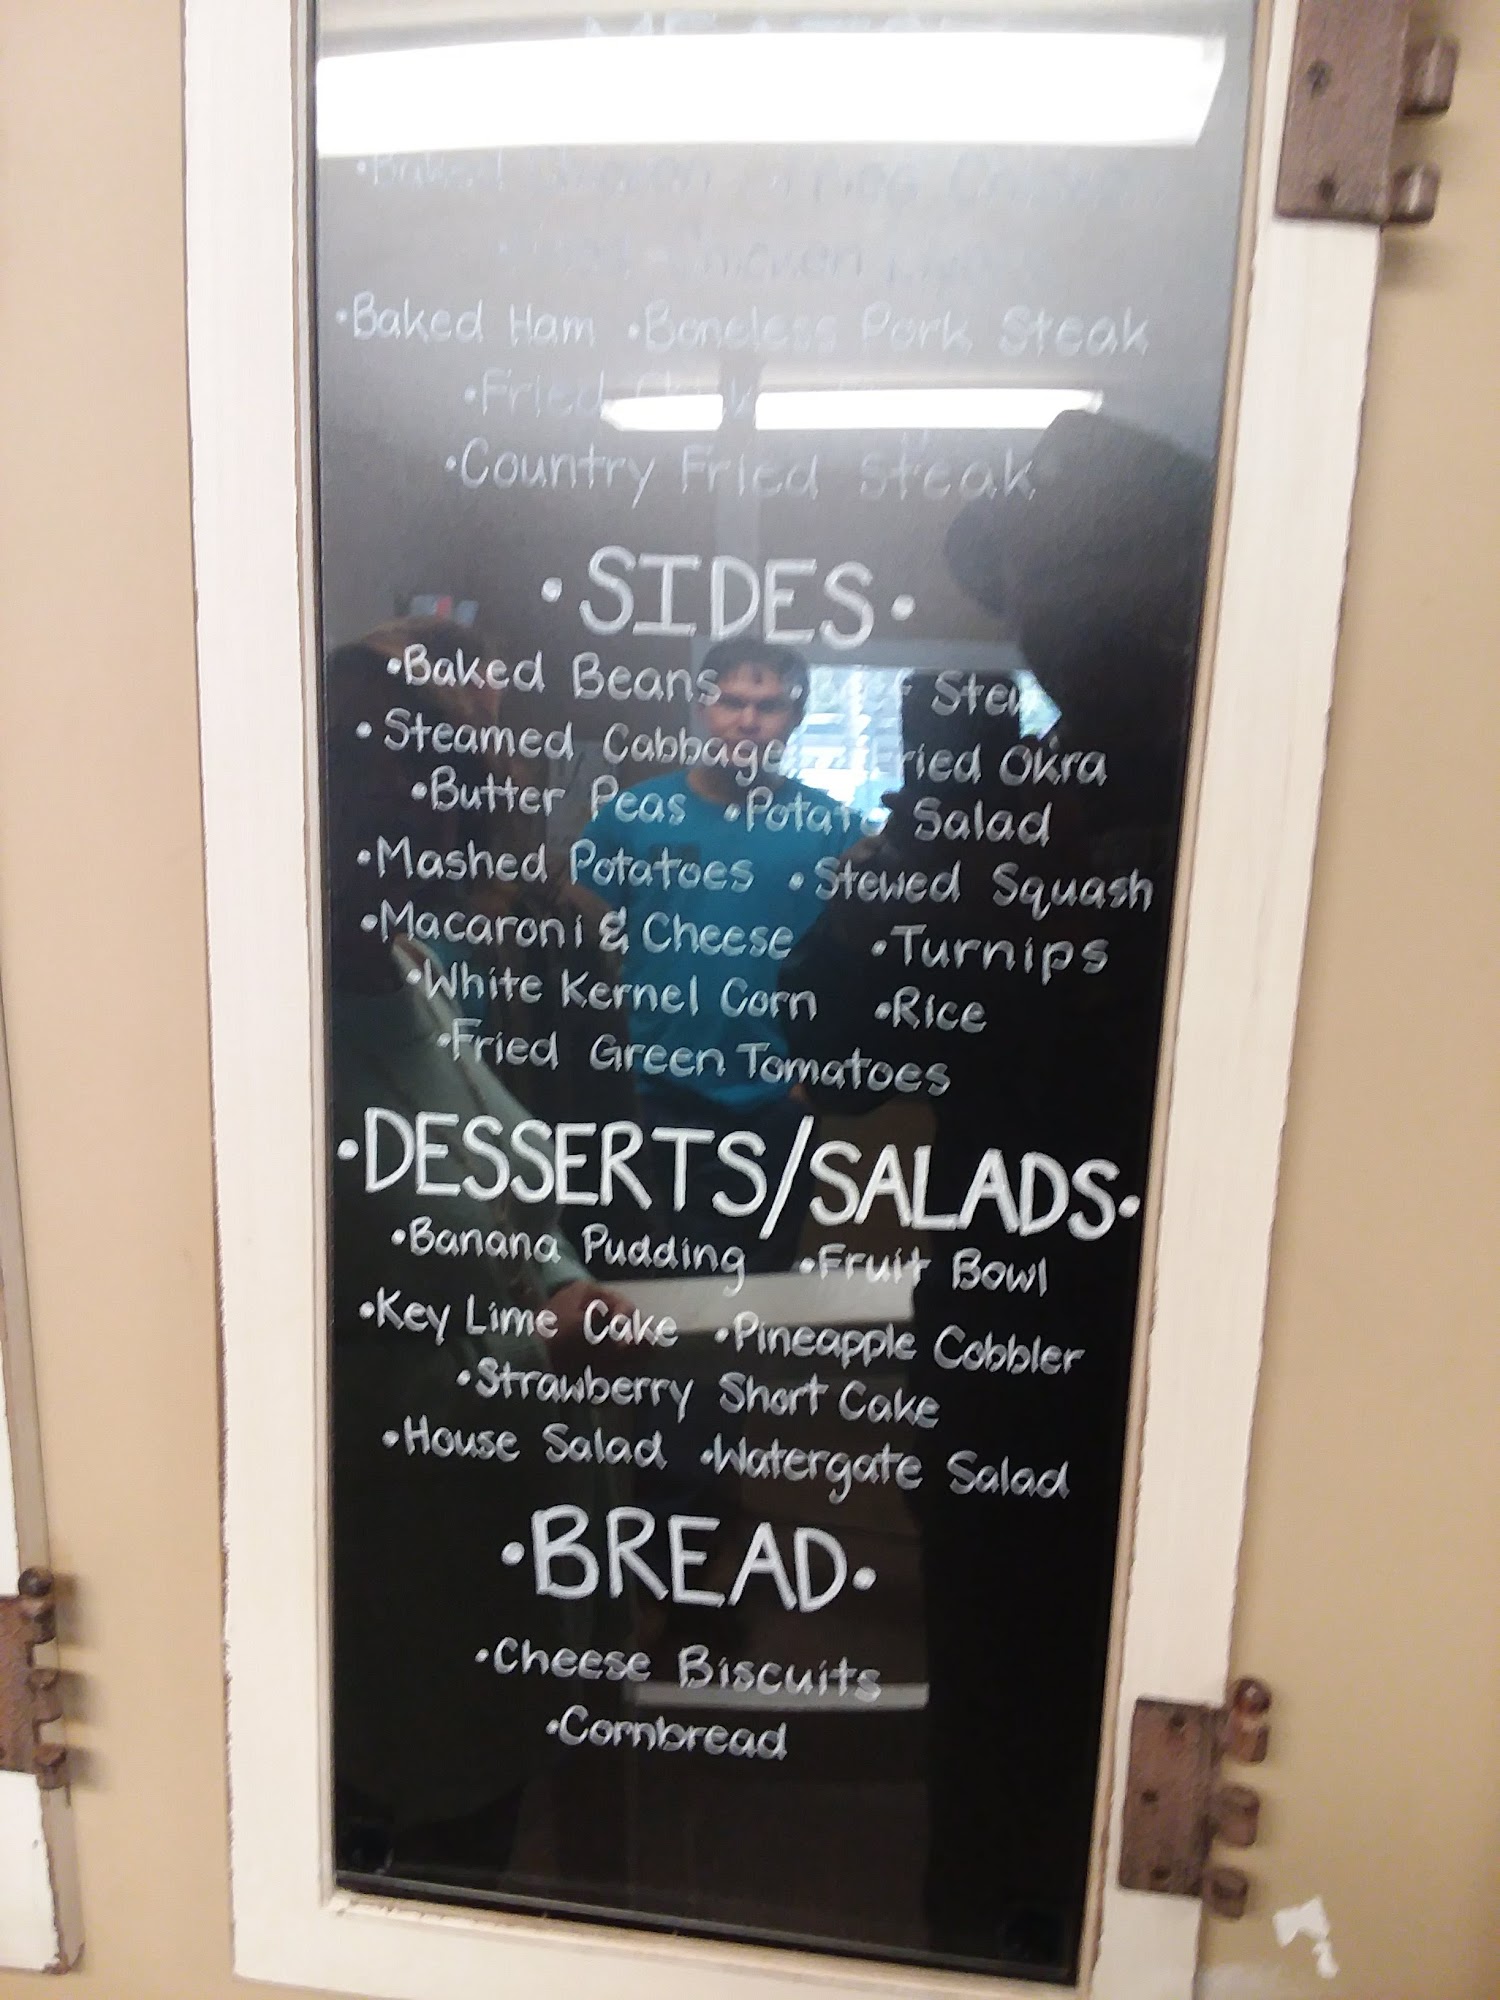 •Baked
Chicken
•Baked Ham •Boneless Pork Steak
•Fried
•Country Fried Steak
•SIDES•
•Baked Beans •Beef Stew
•Steamed Cabbage •Fried Okra
•Butter Peas •Potato Salad
•Mashed Potatoes •Stewed Squash
•Macaroni & Cheese •Turnips
•White Kernel Corn •Rice
•Fried Green Tomatoes
•DESSERTS/SALADS•
•Banana Pudding •Fruit Bowl
•Key Lime Cake •Pineapple Cobbler
•Strawberry Short Cake
•House Salad •Watergate Salad
•BREAD•
•Cheese Biscuits
•Cornbread